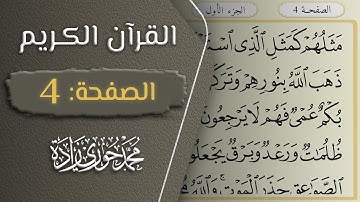 القرآن الكريم
الصفحة: 4
محمد حوري زاده
الصفحـة 4
الجزء الأول
مَثَلُهُمْ كَمَثَلِ ٱلَّذِى
ذَهَبَ ٱللَّهُ بِنُورِهِمْ وَتَرَكَ
بُكْمٌ عُمْىٌ فَهُمْ لَا يَرْجِعُونَ
ظُلُمَٰتٌ وَرَعْدٌ وَبَرْقٌ يَجْعَلُو
ٱلصَّوَٰعِقِ حَذَرَ ٱلْمَوْتِ وَٱللَّهُ